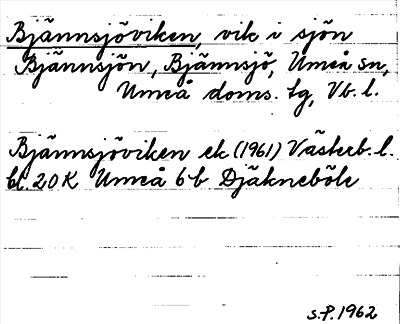 Bjännsjöviken, vik i sjön
Bjännsjön, Bjännsjö, Umeå sn,
Umeå doms. tg, Vb. l.
Bjännsjöviken ek (1961) Västerb. l.
bl. 20 K Umeå 6 b Djäkneböle
S.P. 1962